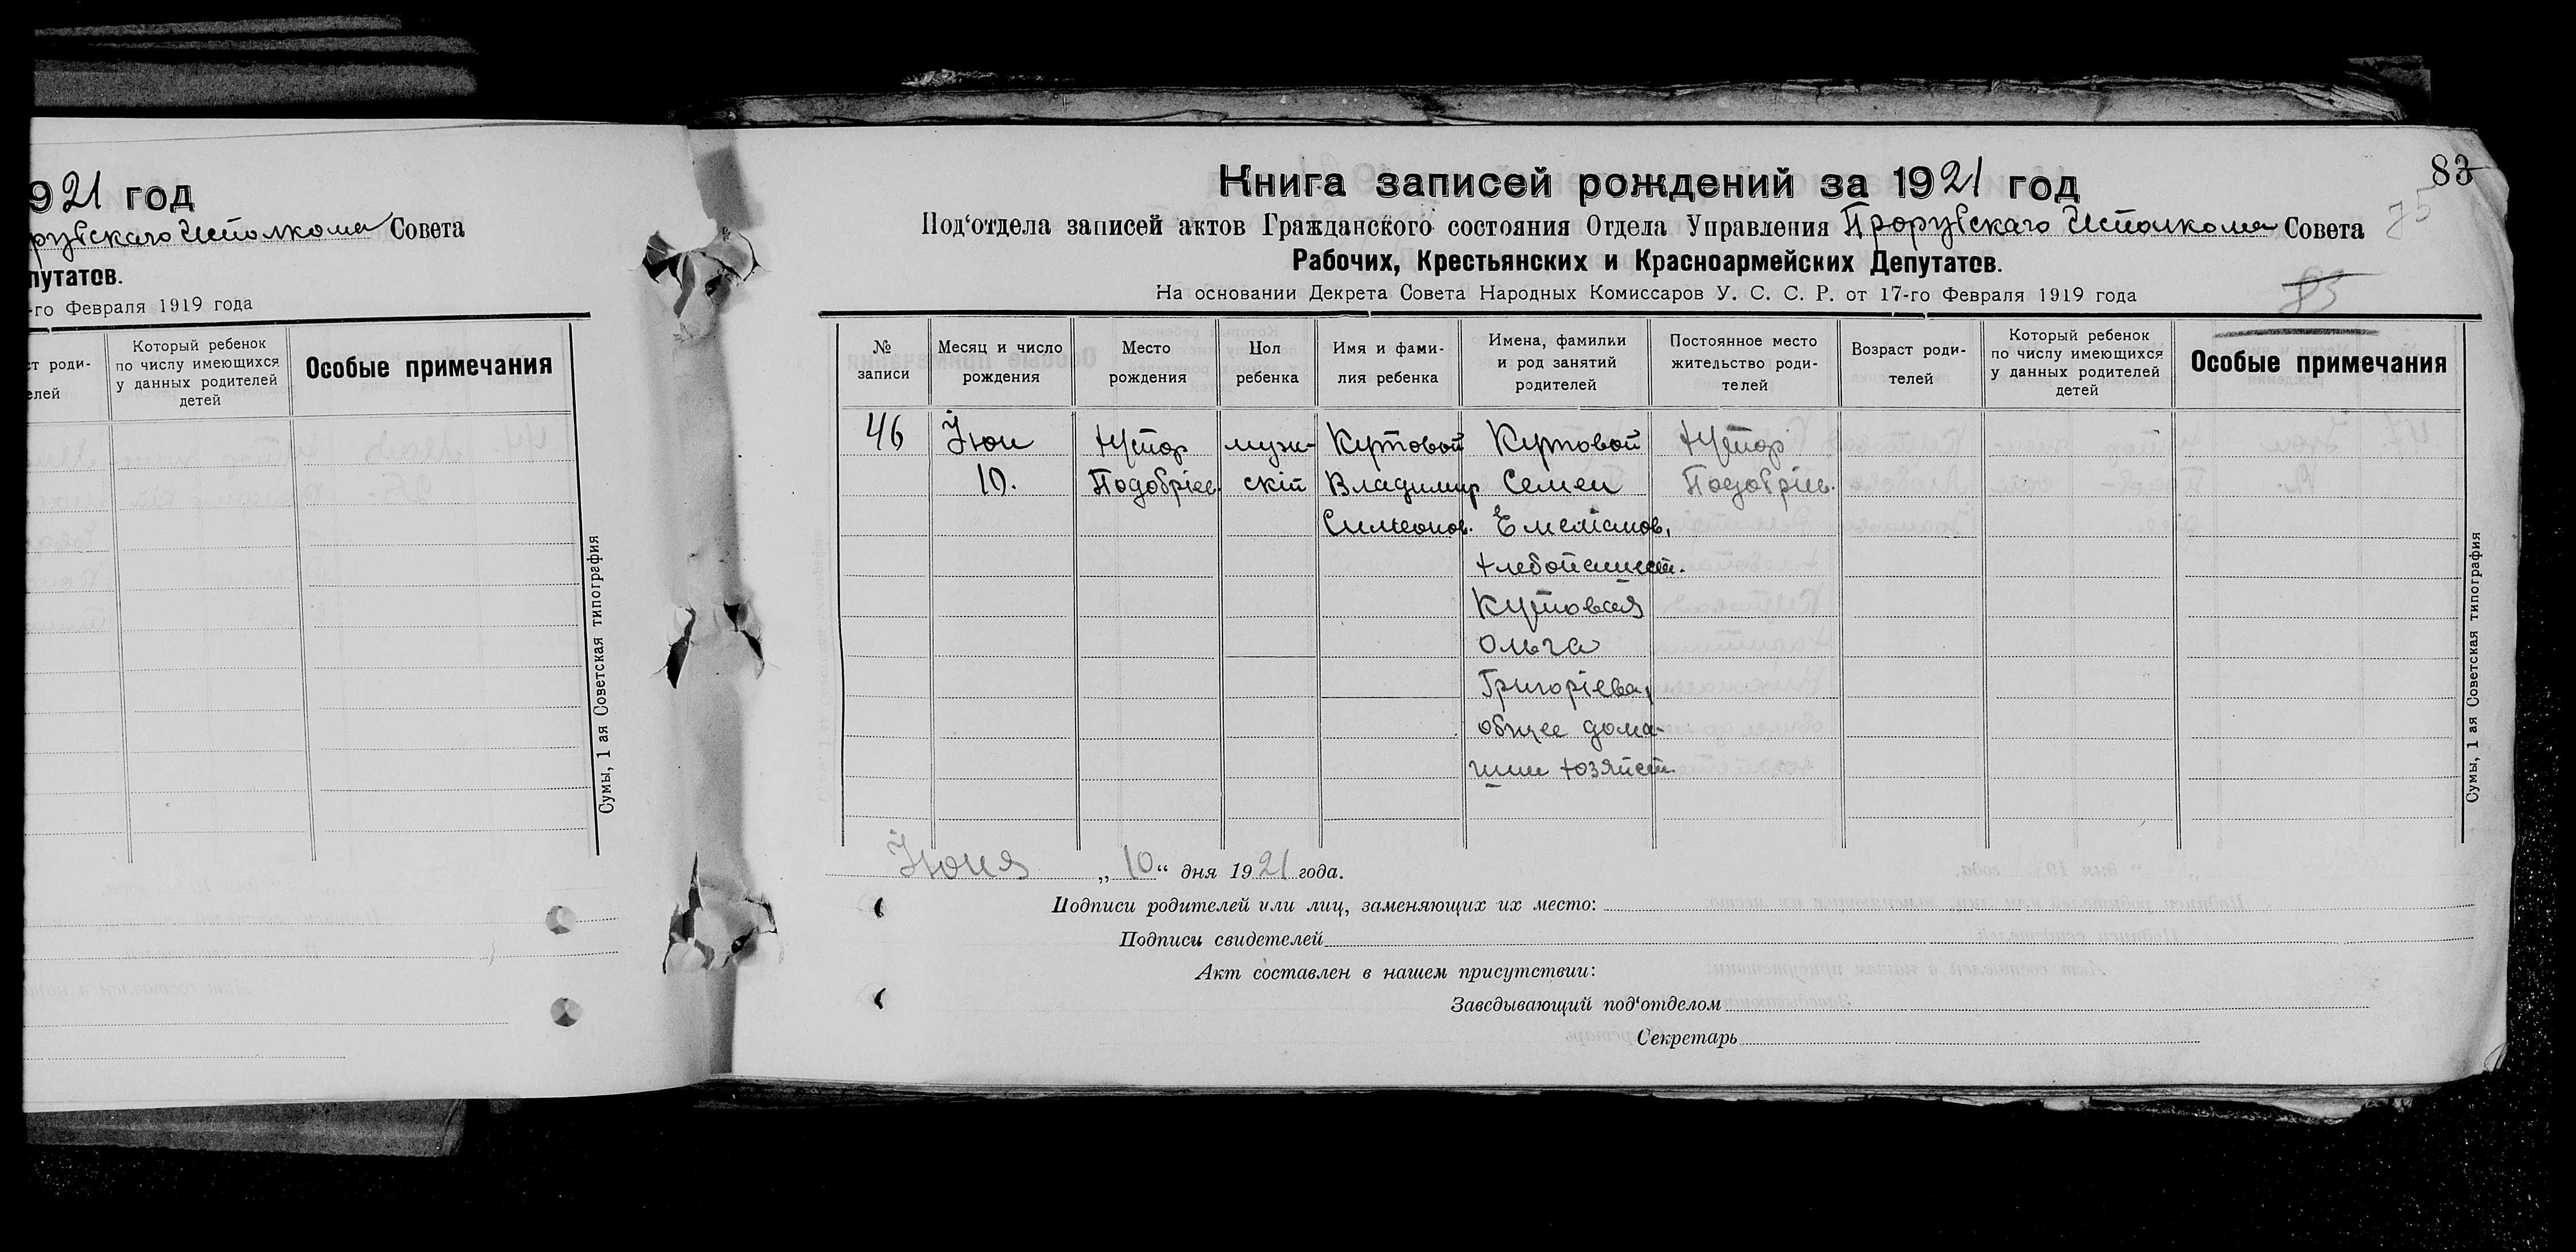 921 год
рубскаго Исполкома Совета
путатов.
-го Февраля 1919 года
ст роди-
елей
Который ребенок
по числу имеющихся
у данных родителей
детей
Особые примечания
Сумы, 1 ая Советская типография
83
75
Книга записей рождений за 1921 год
Под‘отдела записей актов Гражданского состояния Отдела Управления Прорубскаго Исполкома Совета
Рабочих, Крестьянских и Красноармейских Депутатов.
На основании Декрета Совета Народных Комиссаров У. С. С. Р. от 17-го Февраля 1919 года
83
№
записи
Месяц и число
рождения
Место
рождения
Пол
ребенка
Имя и фами-
лия ребенка
Имена, фамилии
и род занятий
родителей
Постоянное место
жительство роди-
телей
Возраст роди-
телей
Который ребенок
по числу имеющихся
у данных родителей
детей
Особые примечания
46
Июн
10.
Хутор
Подобріев
муж-
скій
Кутовой
Владимир
Симеонов.
Кутовой
Семен
Емеліанов,
хлебопашест.
Кутовая
Ольга
Григоріева,
общее дома-
шни хозяйст.
Хутор
Подобріев.
Июня „10“ дня 1921 года.
Подписи родителей или лиц, заменяющих их место:
Подписи свидетелей
Акт составлен в нашем присутствии:
Заведывающий под‘отделом
Секретарь
Сумы, 1 ая Советская типография